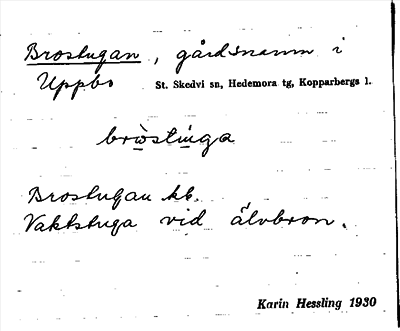 Brostugan, gårdsnamn i
Uppbo St. Skedvi sn, Hedemora tg, Kopparbergs l.
brẁ̲stìnga
Brostugan kb.
Vaktstuga vid älvbron.
Karin Hessling 1930